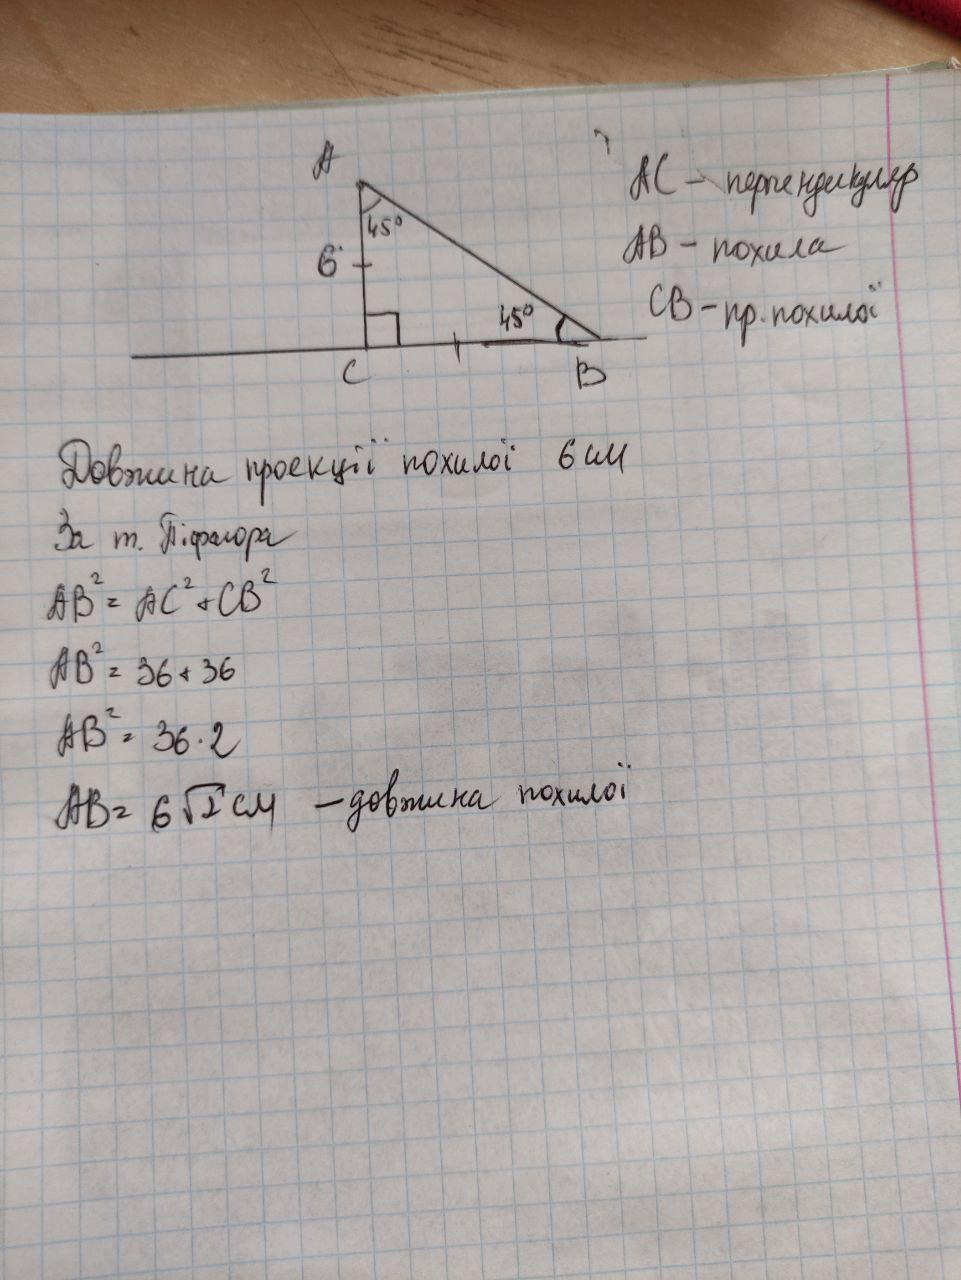 A
45°
6
45°
C
B
AC - перпендикуляр
AB - похила
CB - пр. похилої
Довжина проекції похилої 6 см
За т. Піфагора
AB² = AC² + CB²
AB² = 36 + 36
AB² = 36 · 2
AB = 6√2 см - довжина похилої